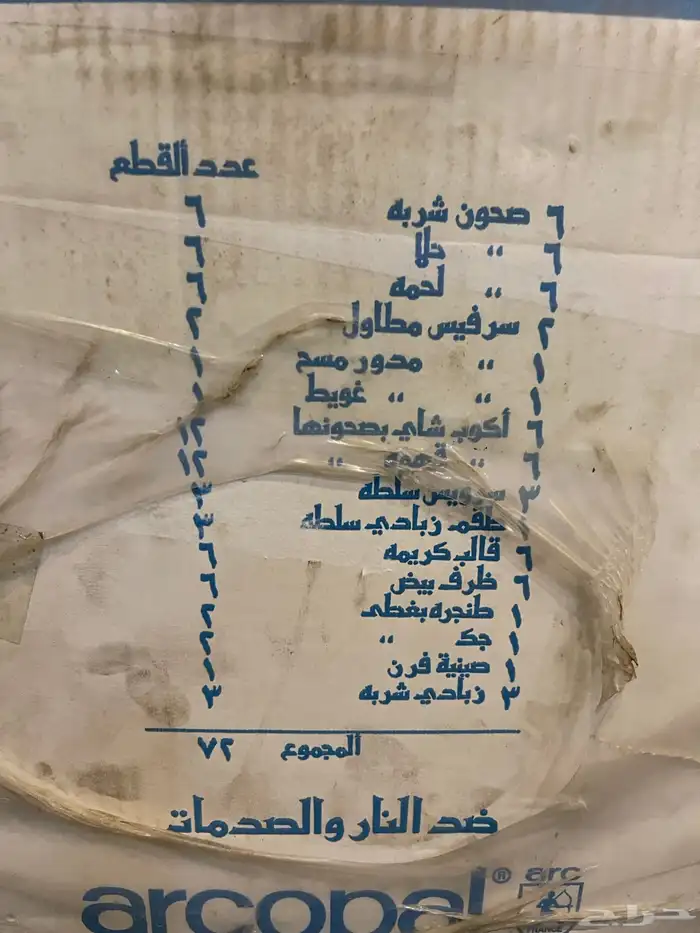 عدد ألقطع
٦ صحون شربه ٦
٦ ،، حلا ٦
٦ ،، لحمه ٦
٢ سرفيس مطاول ٢
١ ،، مدور مسح ١
١ ،، ،، غويط ١
٦ أكوب شاي بصحونها ١٢
٦ ،، قهوه ،، ١٢
٣ سرويس سلطه ٣
١ طقم زبادي سلطه ٣
٦ قالب كريمه ٦
٦ ظرف بيض ٦
١ طنجره بغطى ٢
١ جك ،، ٢
١ صينية فرن ١
٣ زبادي شربه ٣
ألمجموع ٧٢
ضد النار والصدمات
arcopal® arc
FRANCE
حراج